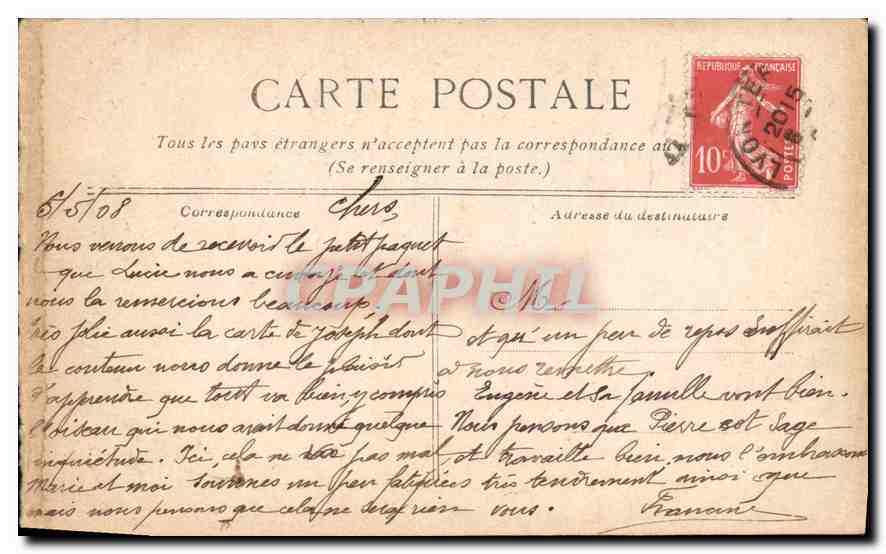 CARTE POSTALE
Tous les pays étrangers n'acceptent pas la correspondance au
(Se renseigner à la poste.)
REPUBLIQUE FRANÇAISE
10c
POSTES
LYON-TER
20 15
5/5/08
Correspondance
Chers,
Nous venons de recevoir le petit paquet
que Lucie nous a envoyé et dont
nous la remercions beaucoup,
très jolie aussi la carte de Joseph dont
le contenu nous donne le plaisir
d'apprendre que tout va bien, y compris
l'oiseau qui nous avait donné quelque
inquiétude. Ici, cela ne va pas mal
Marie et moi sommes un peu fatiguées
mais nous pensons que cela ne sera rien
Adresse du destinataire
M
et qu'un peu de repos suffirait
à nous remettre,
Eugène et sa famille vont bien.
Nous pensons que Pierre est sage
et travaille bien, nous l'embrassons
très tendrement ainsi que
vous.
Francine
CPAPHIL